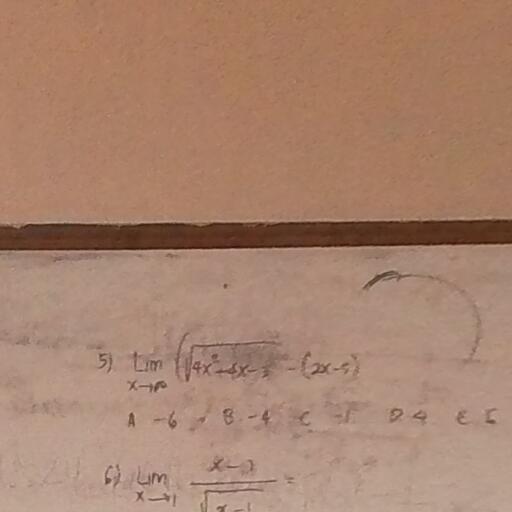 5) Lim x→∞ (√4x²-4x-3 - (2x-5)
A -6 B -4 C -1 D 4 E 6
6) Lim x→1 x-1 / √x-1 =